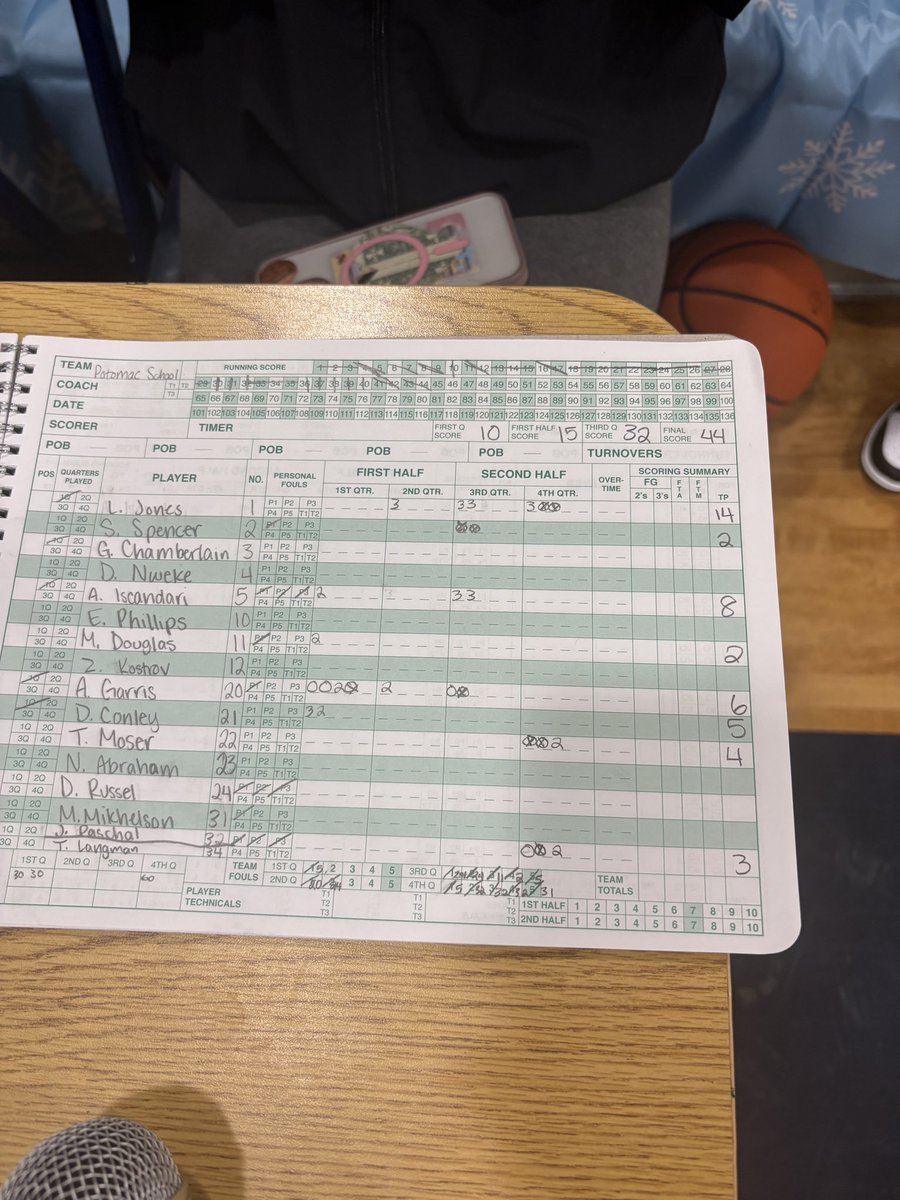 TEAM Potomac School RUNNING SCORE 1 2 3 4 5 6 7 8 9 10 11 12 13 14 15 16 17 18 19 20 21 22 23 24 25 26 27 28
COACH T1 T2 29 30 31 32 33 34 35 36 37 38 39 40 41 42 43 44 45 46 47 48 49 50 51 52 53 54 55 56 57 58 59 60 61 62 63 64
T3 65 66 67 68 69 70 71 72 73 74 75 76 77 78 79 80 81 82 83 84 85 86 87 88 89 90 91 92 93 94 95 96 97 98 99 100
DATE 101 102 103 104 105 106 107 108 109 110 111 112 113 114 115 116 117 118 119 120 121 122 123 124 125 126 127 128 129 130 131 132 133 134 135 136
SCORER TIMER FIRST Q SCORE 10 FIRST HALF SCORE 15 THIRD Q SCORE 32 FINAL SCORE 44
POB POB POB POB POB TURNOVERS
POS QUARTERS PLAYED PLAYER NO. PERSONAL FOULS FIRST HALF SECOND HALF OVER-TIME SCORING SUMMARY
1ST QTR. 2ND QTR. 3RD QTR. 4TH QTR. FG 2's 3's FTA FTM TP
1Q 2Q 3Q 4Q L. Jones 1 P1 P2 P3 P4 P5 T1 T2 3 33 300 14
1Q 2Q 3Q 4Q S. Spencer 2 P1 P2 P3 P4 P5 T1 T2 00 2
1Q 2Q 3Q 4Q G. Chamberlain 3 P1 P2 P3 P4 P5 T1 T2
1Q 2Q 3Q 4Q D. Nweke 4 P1 P2 P3 P4 P5 T1 T2
1Q 2Q 3Q 4Q A. Iscandari 5 P1 P2 P3 P4 P5 T1 T2 2 33 8
1Q 2Q 3Q 4Q E. Phillips 10 P1 P2 P3 P4 P5 T1 T2
1Q 2Q 3Q 4Q M. Douglas 11 P1 P2 P3 P4 P5 T1 T2 2 2
1Q 2Q 3Q 4Q Z. Kostrov 12 P1 P2 P3 P4 P5 T1 T2
1Q 2Q 3Q 4Q A. Garris 20 P1 P2 P3 P4 P5 T1 T2 0020 2 00 6
1Q 2Q 3Q 4Q D. Conley 21 P1 P2 P3 P4 P5 T1 T2 32 5
1Q 2Q 3Q 4Q T. Moser 22 P1 P2 P3 P4 P5 T1 T2 002 4
1Q 2Q 3Q 4Q N. Abraham 23 P1 P2 P3 P4 P5 T1 T2
1Q 2Q 3Q 4Q D. Russel 24 P1 P2 P3 P4 P5 T1 T2
1Q 2Q 3Q 4Q M. Mikhelson 31 P1 P2 P3 P4 P5 T1 T2
1Q 2Q J. Paschal 32 P1 P2 P3
3Q 4Q T. Langman 34 P4 P5 T1 T2 00 2 3
1ST Q 2ND Q 3RD Q 4TH Q TEAM FOULS 1ST Q 2 3 4 5 3RD Q TEAM TOTALS
30 30 60 2ND Q 3 4 5 4TH Q 31
PLAYER TECHNICALS T1 T1 T2 T2 T3 T3 T1 T2 T3 1ST HALF 1 2 3 4 5 6 7 8 9 10
2ND HALF 1 2 3 4 5 6 7 8 9 10